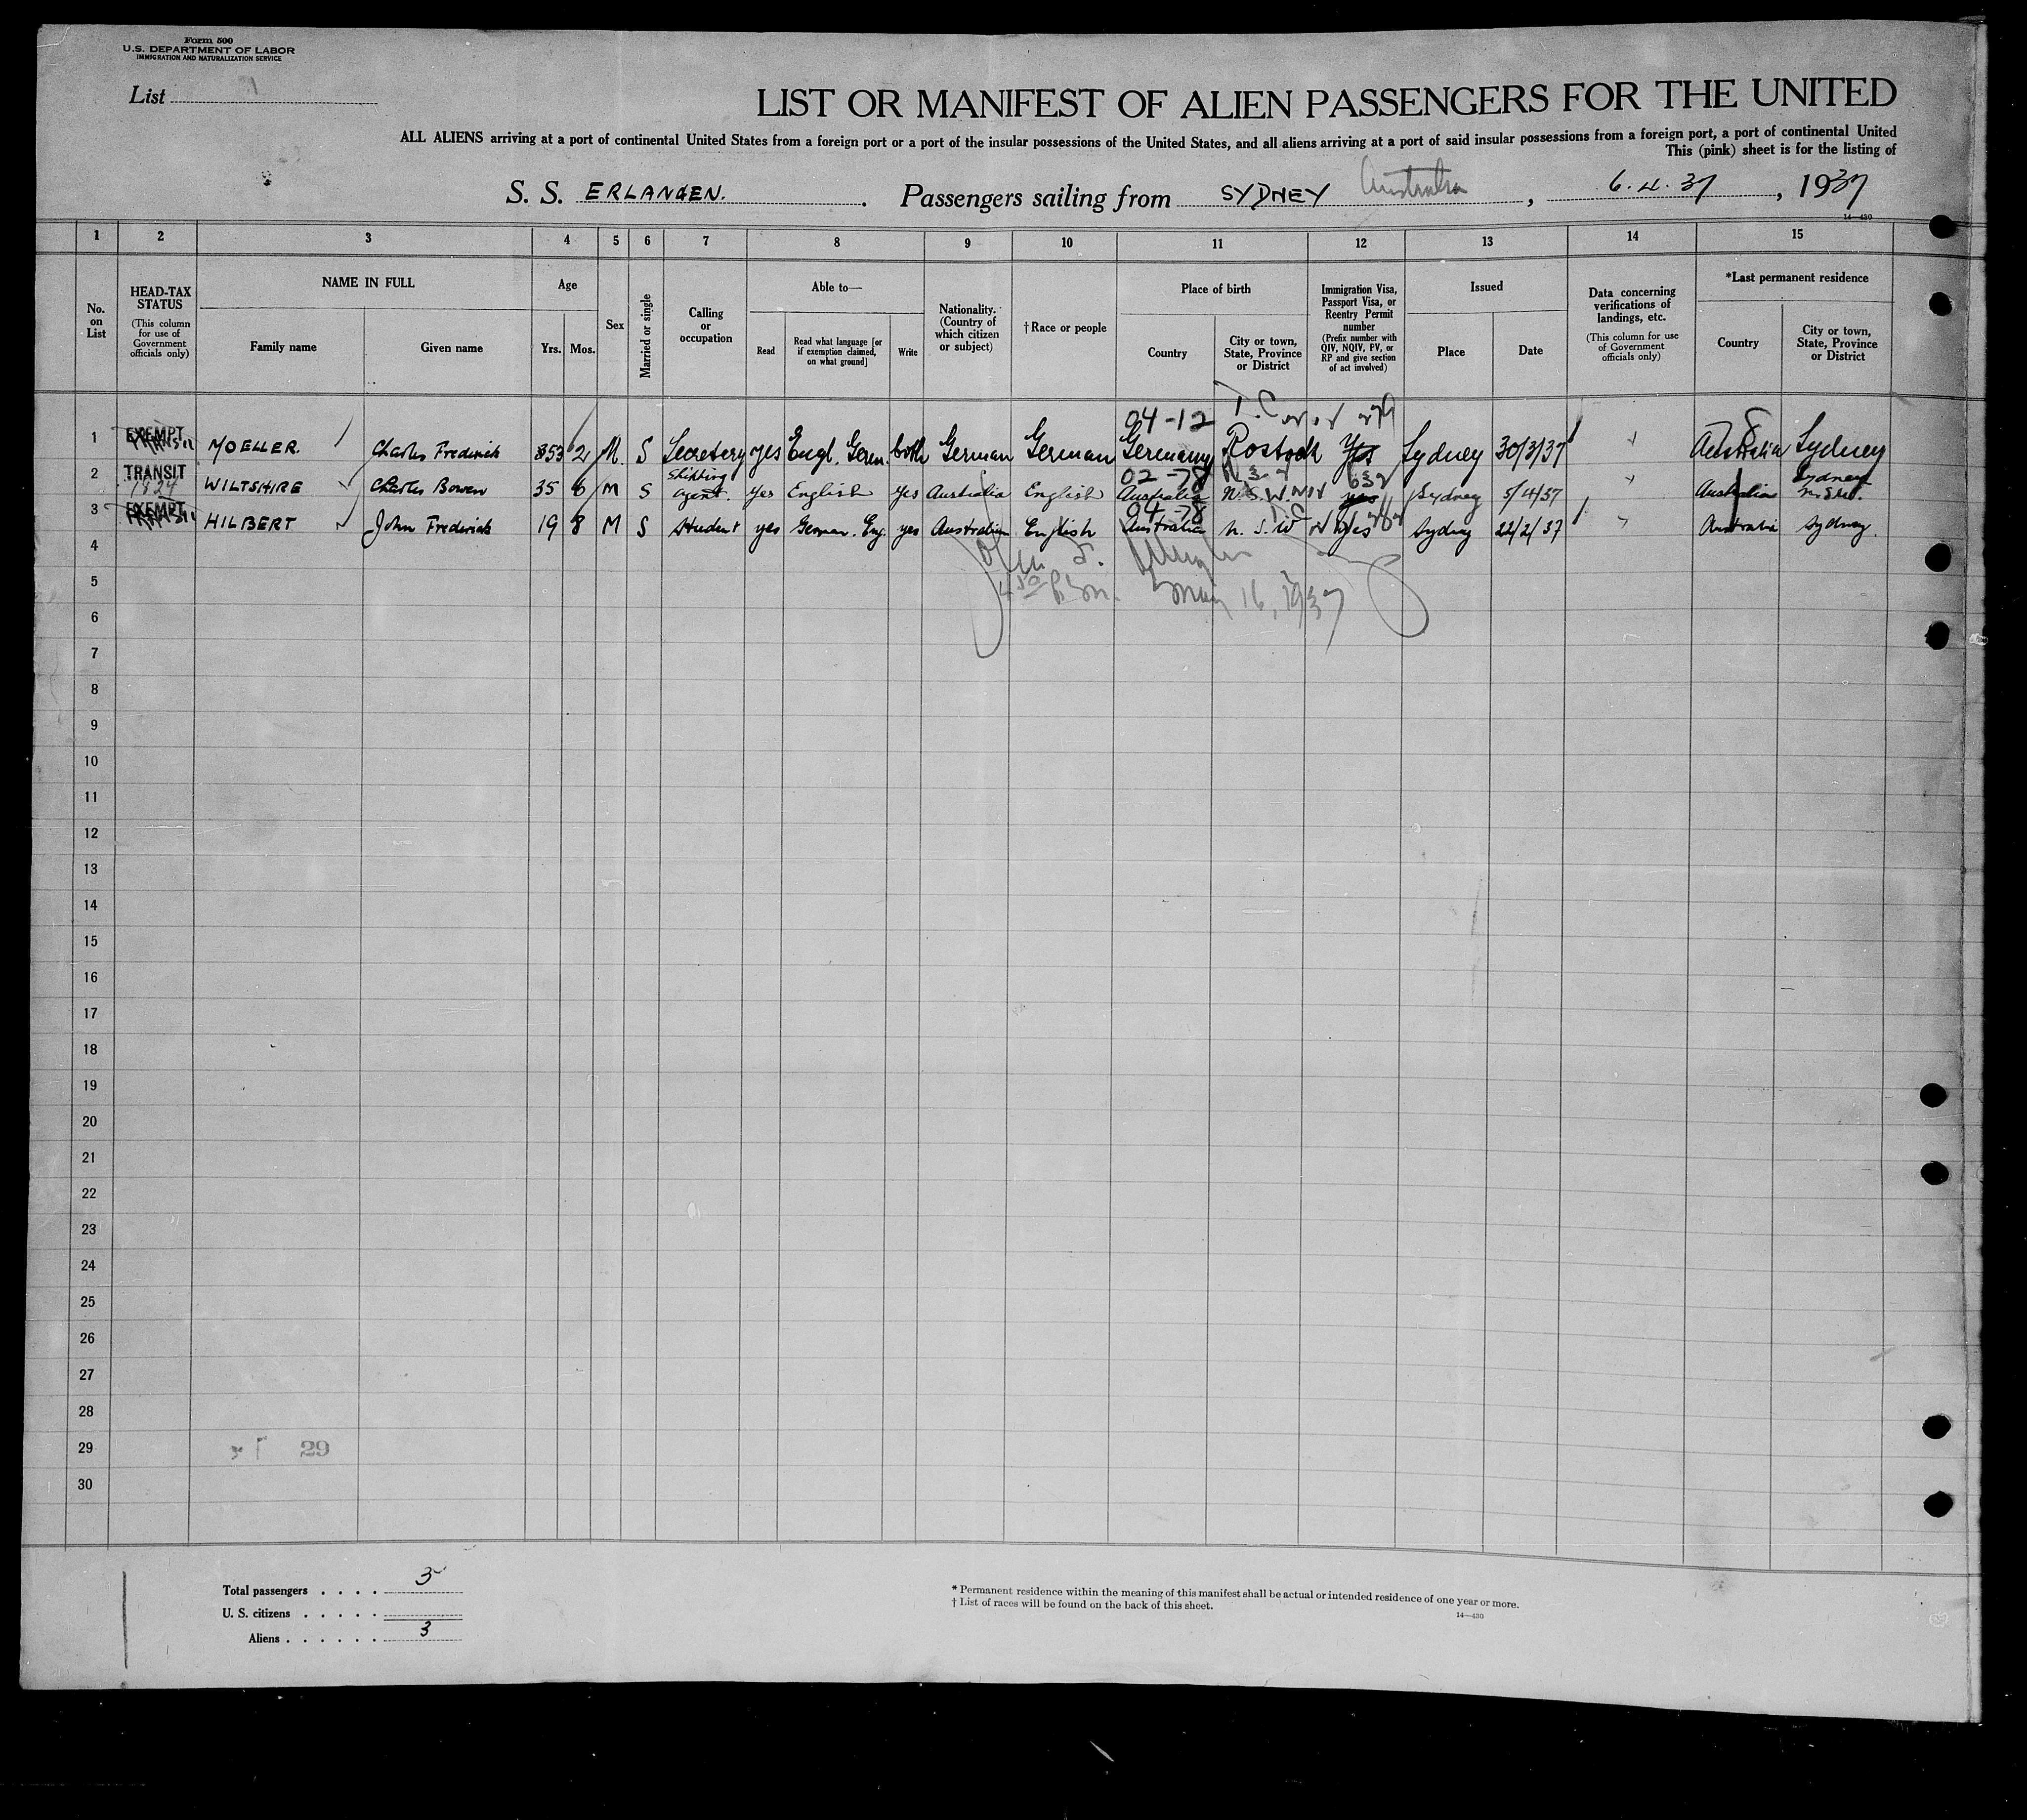 Form 500
U.S. DEPARTMENT OF LABOR
IMMIGRATION AND NATURALIZATION SERVICE
List 1
LIST OR MANIFEST OF ALIEN PASSENGERS FOR THE UNITED
ALL ALIENS arriving at a port of continental United States from a foreign port or a port of the insular possessions of the United States, and all aliens arriving at a port of said insular possessions from a foreign port, a port of continental United
This (pink) sheet is for the listing of
S. S. ERLANGEN. Passengers sailing from SYDNEY Australia, 6.4.37, 1937
14—430
1 2 3 4 5 6 7 8 9 10 11 12 13 14 15
No. on List
HEAD-TAX STATUS
(This column for use of Government officials only)
NAME IN FULL
Family name
Given name
Age
Yrs. Mos.
Sex
Married or single
Calling or occupation
Able to—
Read
Read what language [or if exemption claimed, on what ground]
Write
Nationality. (Country of which citizen or subject)
†Race or people
Place of birth
Country
City or town, State, Province or District
Immigration Visa, Passport Visa, or Reentry Permit number
(Prefix number with QIV, NQIV, PV, or RP and give section of act involved)
Issued
Place
Date
Data concerning verifications of landings, etc.
(This column for use of Government officials only)
*Last permanent residence
Country
City or town, State, Province or District
04-12
1 EXEMPT MOELLER. Charles Frederick 53 2 M. S Secretary yes Engl. Germ. both German German Germany Rostock Yes Sydney 30/3/37 Australia Sydney
02-78 632
2 TRANSIT WILTSHIRE Charles Bowen 35 6 M S Shipping agent. yes English yes Australia English Australia N.S.W. yes Sydney 5/4/37 Australia Sydney N.S.W.
04-78
3 EXEMPT HILBERT John Frederick 19 8 M S Student yes German. Eng. yes Australian English Australia N.S.W yes Sydney 22/2/37 Australia Sydney.
4
5
May 16, 1937
6
7
8
9
10
11
12
13
14
15
16
17
18
19
20
21
22
23
24
25
26
27
28
29
29
30
Total passengers . . . . 3
U. S. citizens . . . . .
Aliens . . . . . . 3
* Permanent residence within the meaning of this manifest shall be actual or intended residence of one year or more.
† List of races will be found on the back of this sheet.
14—430